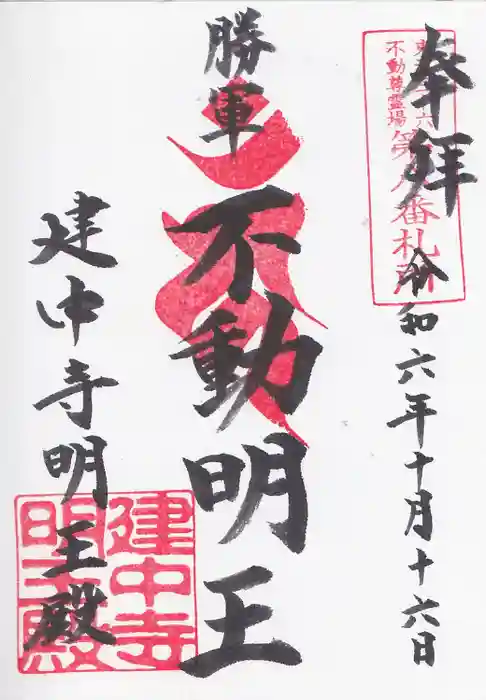 奉拝
不動尊霊場
番札所
令和六年十月十六日
勝軍
不動明王
建中寺明王殿
建中寺
明王殿